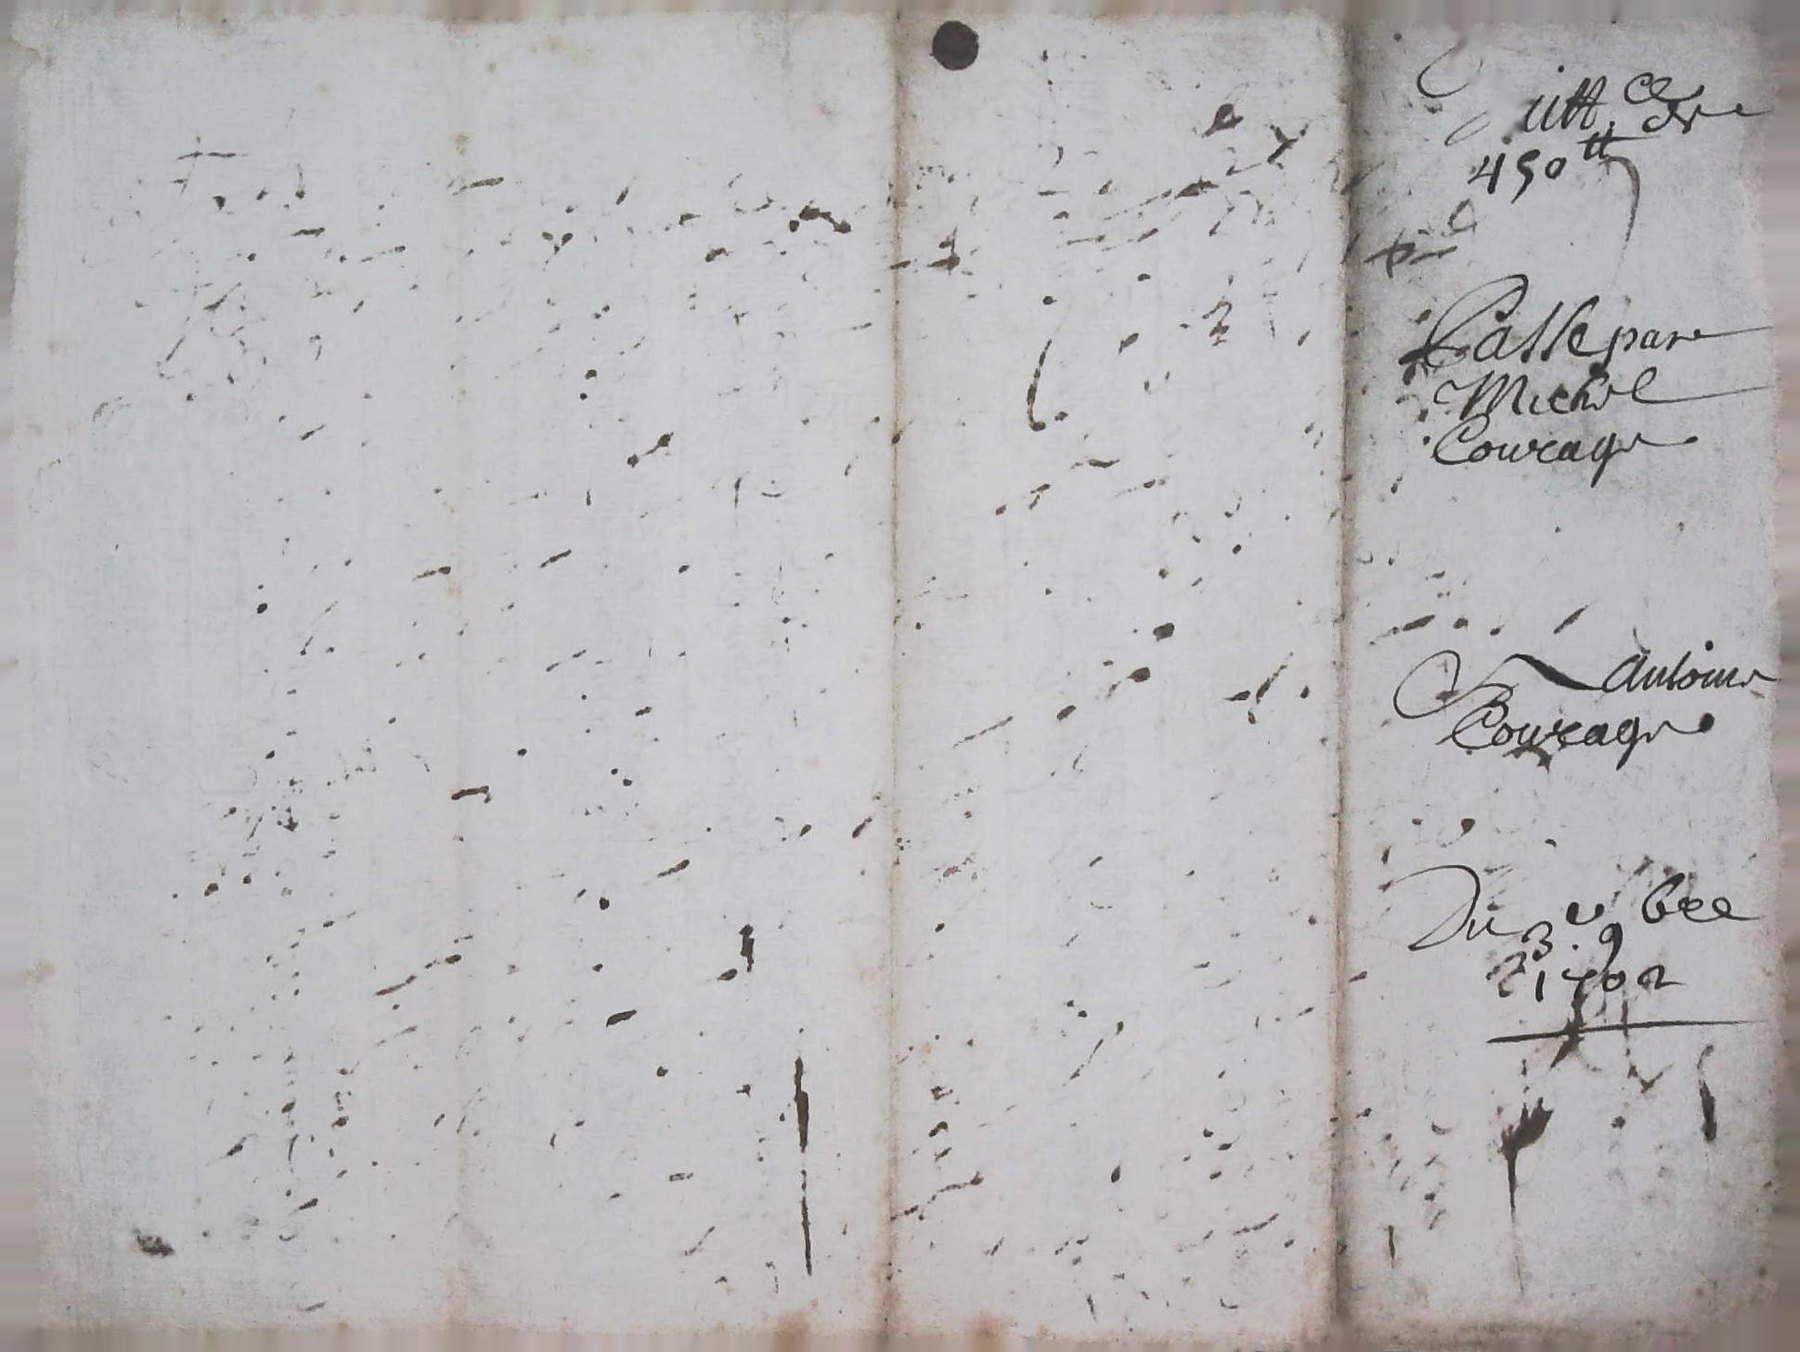 Quitt.ce de
450 tt
Passé par
Michel
Courage
A Antoine
Courage
Du 3.e 9bre
1702